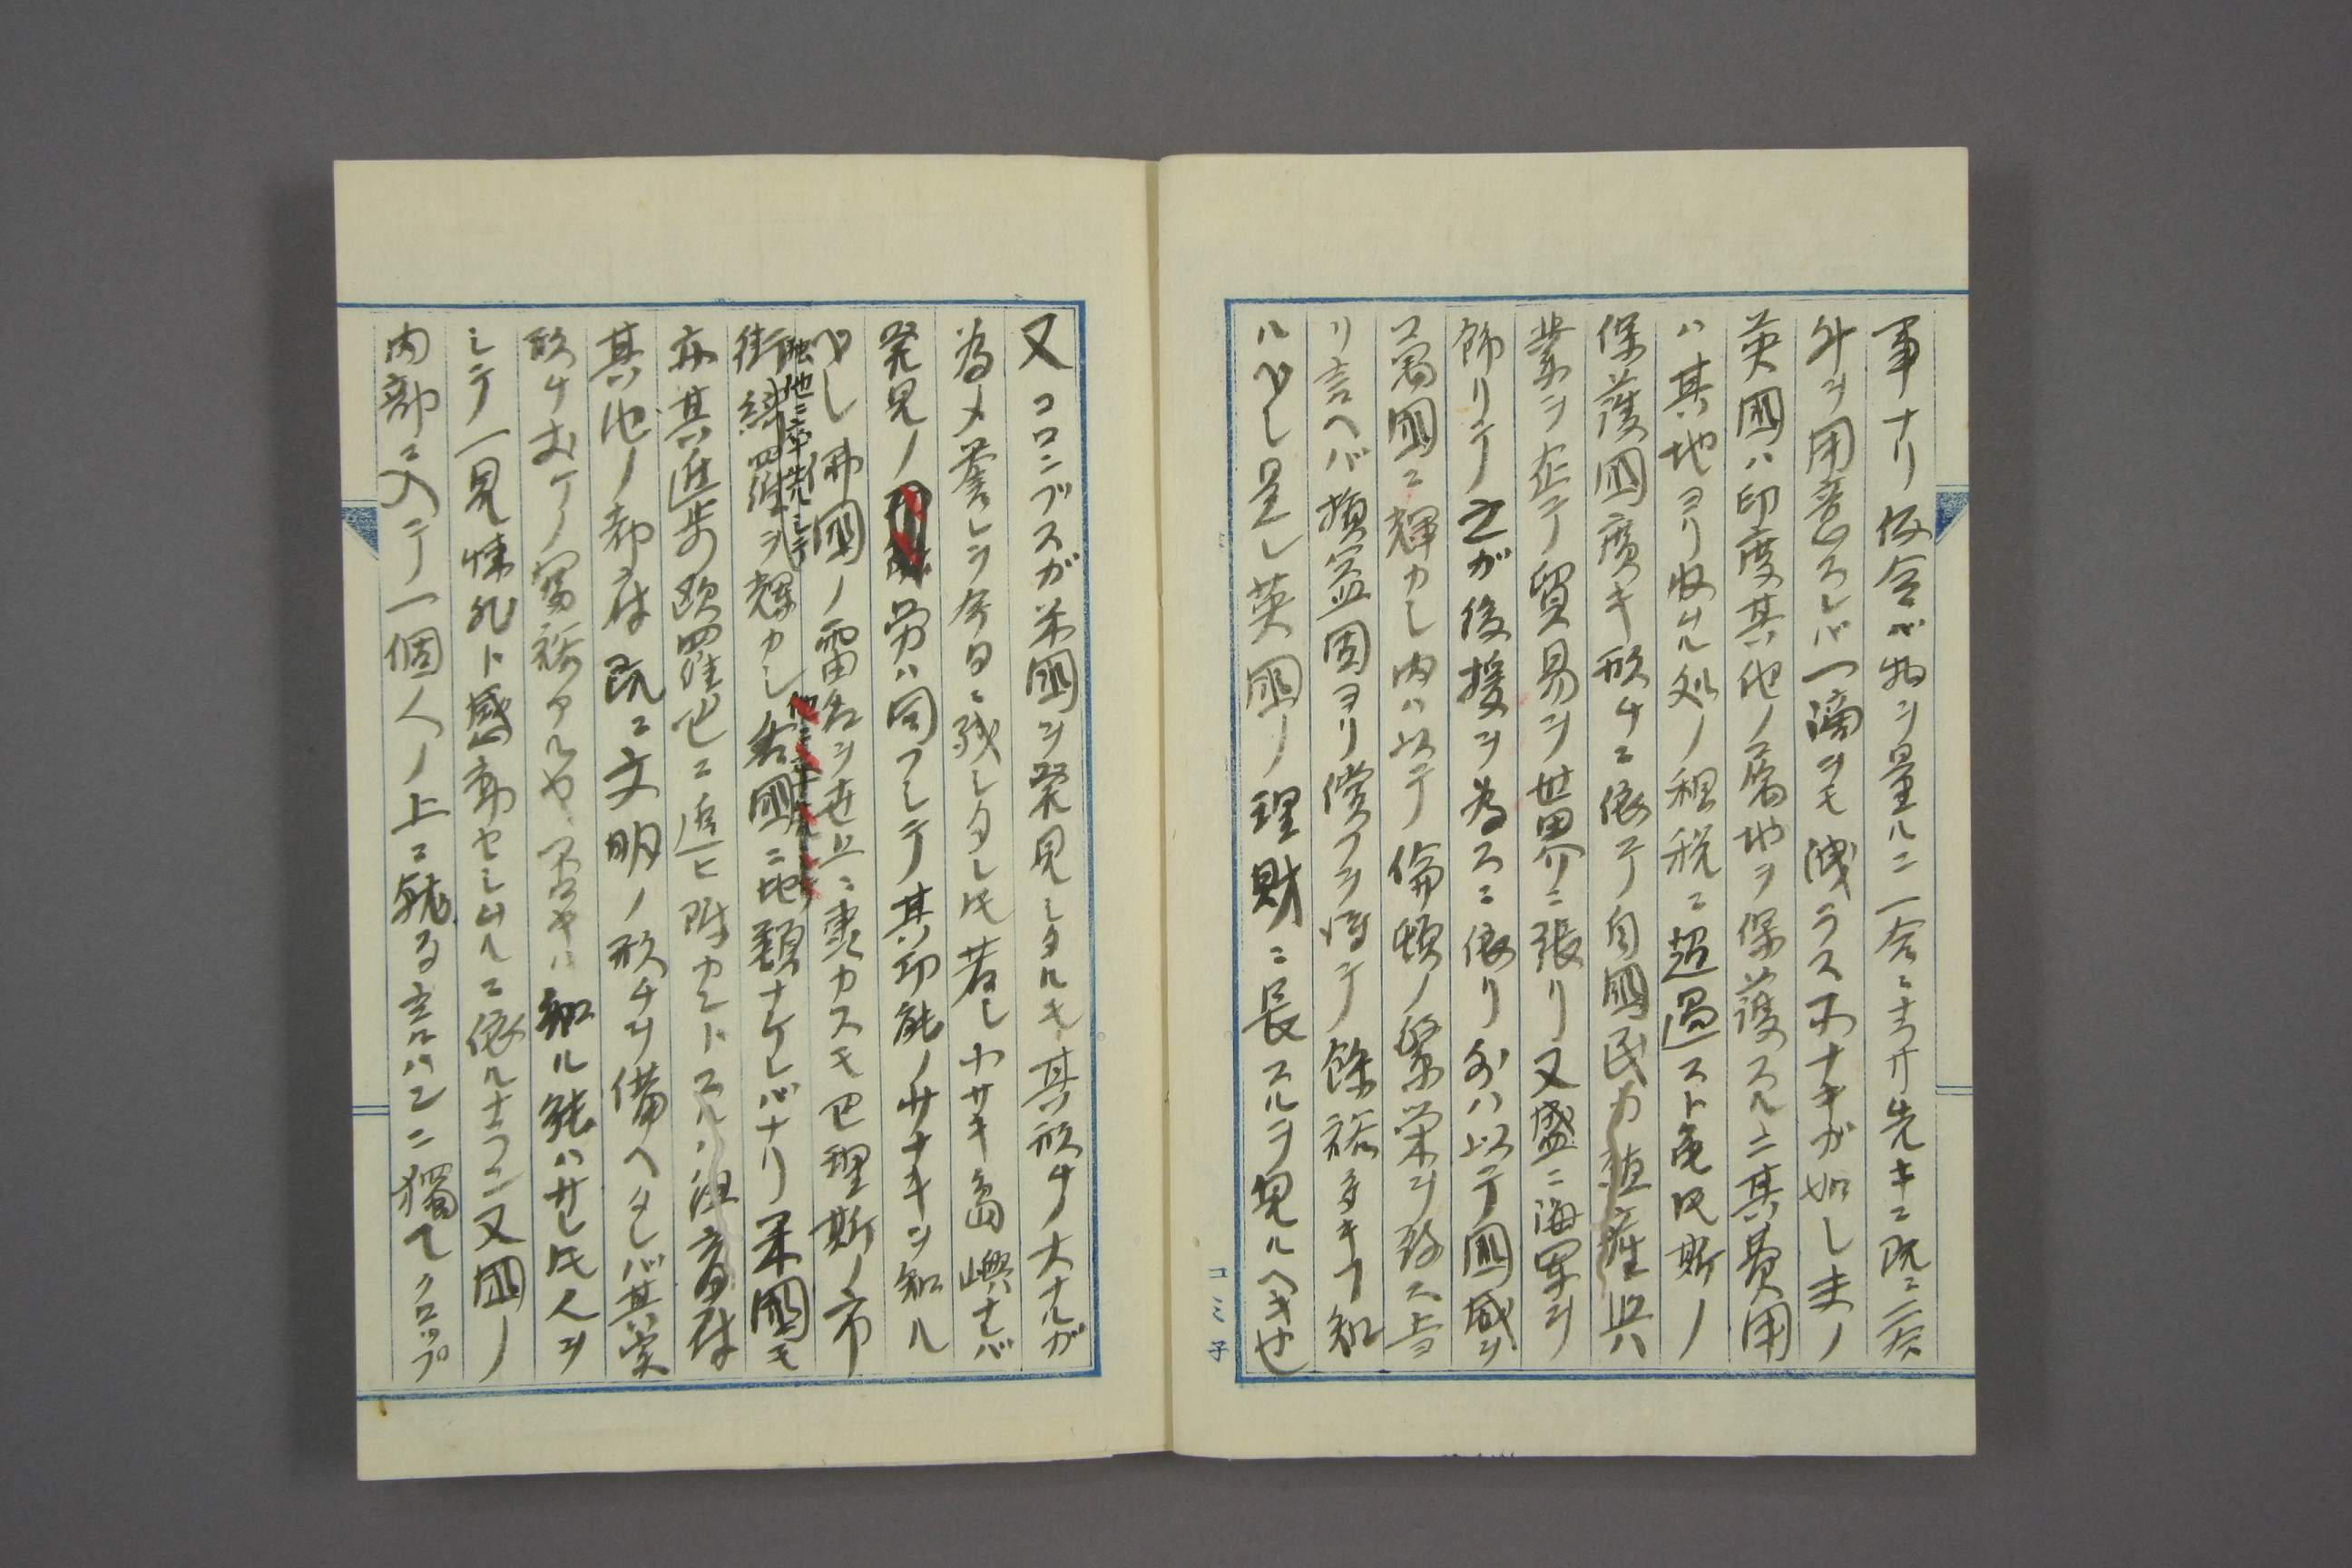 事ナリ仮令バ物ヲ量ルニ一合ニナラサ先キニ既ニ一合
外ヲ用意スレバ一滴ヲモ洩ラスコナキガ如レ
英國ハ印度其他ノ属地ヲ保護スルニ其費用
ハ其地ヨリ收ムル処ノ租税ニ超過スト
保護國廣キ形チニ依テ自國民力殖産
業ヲ企テ貿易ヲ世界ニ張リ又盛ニ海軍ヲ
飾リテ之ガ後援ヲ為スニ依リ外ハ以テ國威ヲ
萬國ニ輝カシ内ハ以テ倫頓ノ繁栄ヲ致ス
リ言ヘバ損益固ヨリ償フヲ得テ餘裕
ルベレ是レ英國ノ理財ニ長スルヲ見ルヘキ也
コミ子
又コロンブスガ米國ヲ発見シタルモ其形チ大ナルガ
為メ誉レヲ今日ニ残レタレ𪜈若レ小サキ島嶼ナレバ
発見ノ労ハ同フシテ其功能ノサナキヲ知ル
ベレ佛國ノ雷名ヲ世上ニ轟カスモ巴理斯ノ市
他ニ率先シテ
街綺羅ヲ輝カシ各國ニ比類ナケレバナリ米國モ
亦其進歩欧羅巴ニ追ヒ附カントスルハ
其他ノ都府既ニ文明ノ形チヲ備ヘタレバ其実
形チ於テノ富裕アルヤ否ヤハ知ル能ハサレ𪜈人ヲ
シテ一見
感動セシムルニ依ルナラン又國ノ
内部ニ入テ一個人ノ上ニ就
獨てクロップ